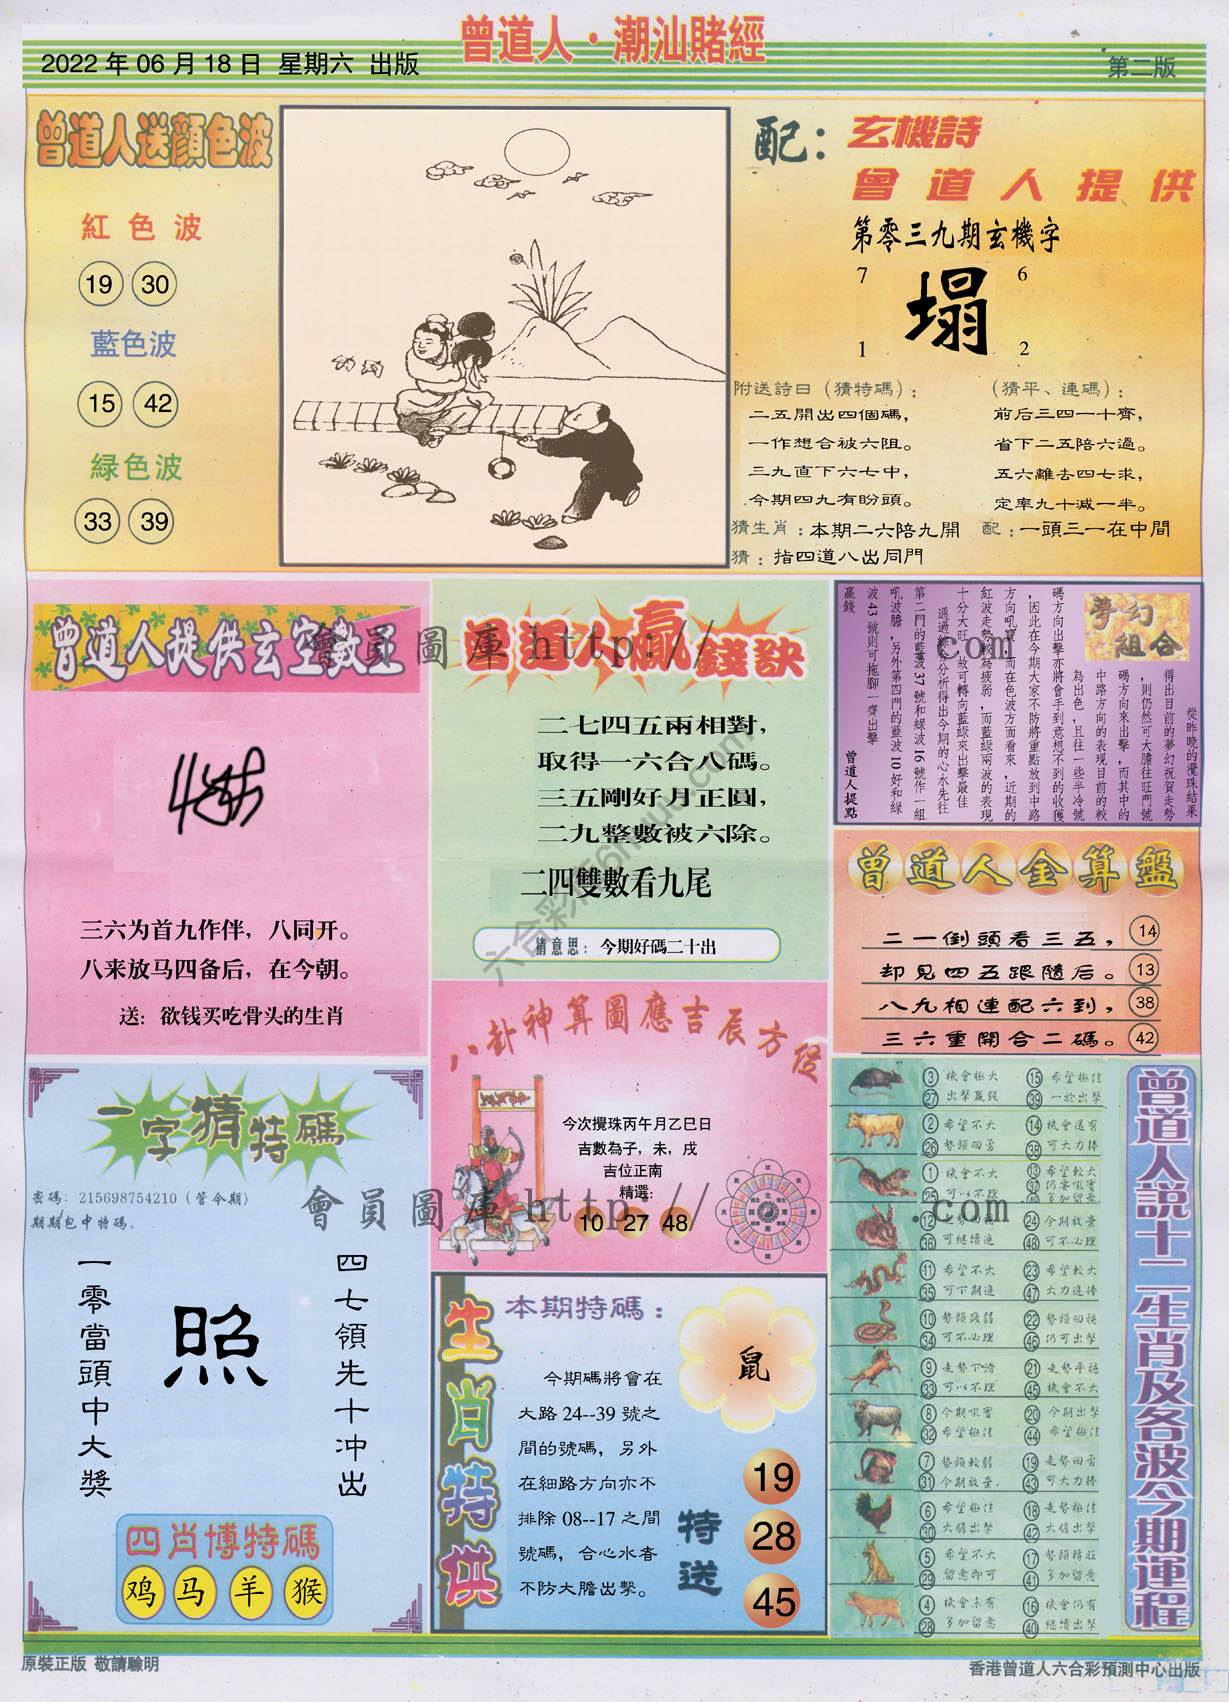 曾道人·潮汕賭經
2022 年 06 月 18 日 星期六 出版
第二版
曾道人送顏色波
紅色波
19 30
藍色波
15 42
綠色波
33 39
配：玄機詩
曾道人提供
第零三九期玄機字
7 6
塌
1 2
附送詩曰（猜特碼）：
二五開出四個碼，
一作想合被六阻。
三九直下六七中，
今期四九有盼頭。
（猜平、連碼）：
前后三四一十齊，
省下二五陪六過。
五六離去四七求，
定率九十減一半。
猜生肖：本期二六陪九開 配：一頭三一在中間
猜：指四道八出同門
曾道人提供玄空數王
三六为首九作伴，八同开。
八来放马四备后，在今朝。
送：欲钱买吃骨头的生肖
曾道人贏錢訣
二七四五兩相對，
取得一六合八碼。
三五剛好月正圓，
二九整數被六除。
二四雙數看九尾
猜意思：今期好碼二十出
夢幻組合
從昨晚的攪珠結果
得出目前的夢幻祝賀走勢
，則仍然可大膽往旺門號
碼方向來出擊，而其中的
中路方向的表現目前的較
為出色，且往一些半冷號
碼方向出擊亦將會手到意想不到的收獲
，因此在今期大家不防將重點放到中路
方向吼寶，而在色波方面看來，近期的
紅波走勢較為疲弱，而藍綠兩波的表現
十分大旺，故可轉向藍綠來出擊最佳
通過綜合分析得出今期的心水先往
第二門的藍波 37 號和綠波 16 號作一組
吼波膽，另外第四門的藍波 10 好和綠
波 43 號則可拖腳一齊出擊
贏錢
曾道人提點
曾道人金算盤
二一倒頭看三五， 14
却見四五跟隨后。 13
八九相連配六到， 38
三六重開合二碼。 42
八卦神算圖應吉辰方位
今次攪珠丙午月乙巳日
吉數為子，未，戌
吉位正南
精選：
10 27 48
一字猜特碼
密碼：215698754210（管今期）
期期包中特碼。
四七領先十冲出
照
一零當頭中大獎
四肖博特碼
鸡 马 羊 猴
生肖特供
本期特碼：
鼠
今期碼將會在
大路 24--39 號之
間的號碼，另外
在細路方向亦不
排除 08--17 之間
號碼，合心水客
不防大膽出擊。
特送
19
28
45
曾道人說十二生肖及各波今期運程
3 機會極大 15 希望極佳
27 出擊贏錢 39 一於出擊
2 希望不大 14 機會還有
26 勢頭回勇 38 可大力捧
1 機會不大 13 希望較大
25 可以不理 37 仍要吼實
多加留意
12 走勢回穩 24 今期放棄
36 可繼續追 48 可不必理
11 希望不大 23 希望較大
35 可下期追 47 大力追捧
10 勢頭號弱 22 勢頭回穩
34 可不必理 46 仍可出擊
9 走勢下滑 21 走勢平穩
33 可以不理 45 機會不大
8 今期吼實 20 今期出擊
32 希望極佳 44 希望極佳
7 勢頭較弱 19 走勢回勇
31 今期放棄. 43 可大力捧
6 希望極佳 18 走勢極佳
30 大膽出擊 42 大膽出擊
5 希望不大 17 勢頭轉旺
29 留意即可 41 多加留意
4 機會未有 16 機會仍有
28 多加留意 40 繼續出擊
會員圖庫 http:// .com
會員圖庫 http:// .com
原裝正版 敬請驗明
香港曾道人六合彩預測中心出版